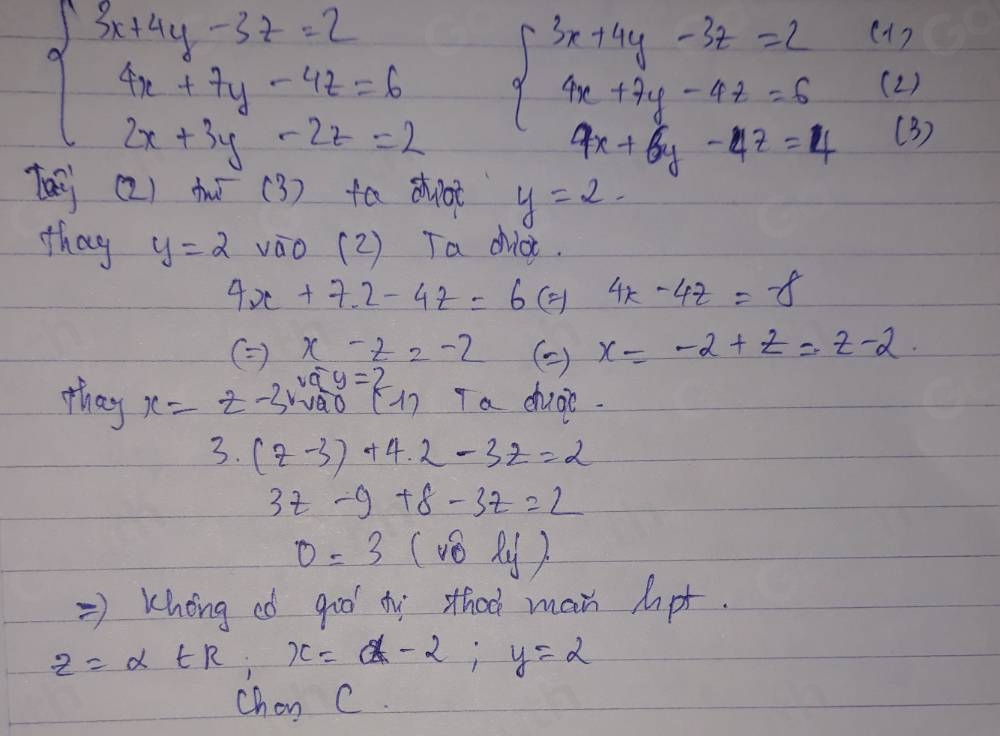 3x+4y -3z =2   3x+4y -3z =2 (1)
4x + 7y - 4z = 6   4x +7y - 4z = 6 (2)
2x + 3y - 2z = 2   4x + 6y - 4z = 4 (3)
Lấy (2) trừ (3) ta được y = 2 -
thay y = 2 vào (2) Ta được.
4x + 7.2 - 4z = 6 (=) 4x - 4z = -8
(=) x - z = -2 (=) x = -2 + z = z - 2.
thay x = z - 3 và y = 2 vào (1) Ta được -
3.(z -3) +4.2 - 3z = 2
3z - 9 +8 - 3z = 2
0 = 3 ( vô lý)
=) không có giá trị thoả mãn hpt.
z = α t R ; x = α - 2 ; y = 2
Chọn C.